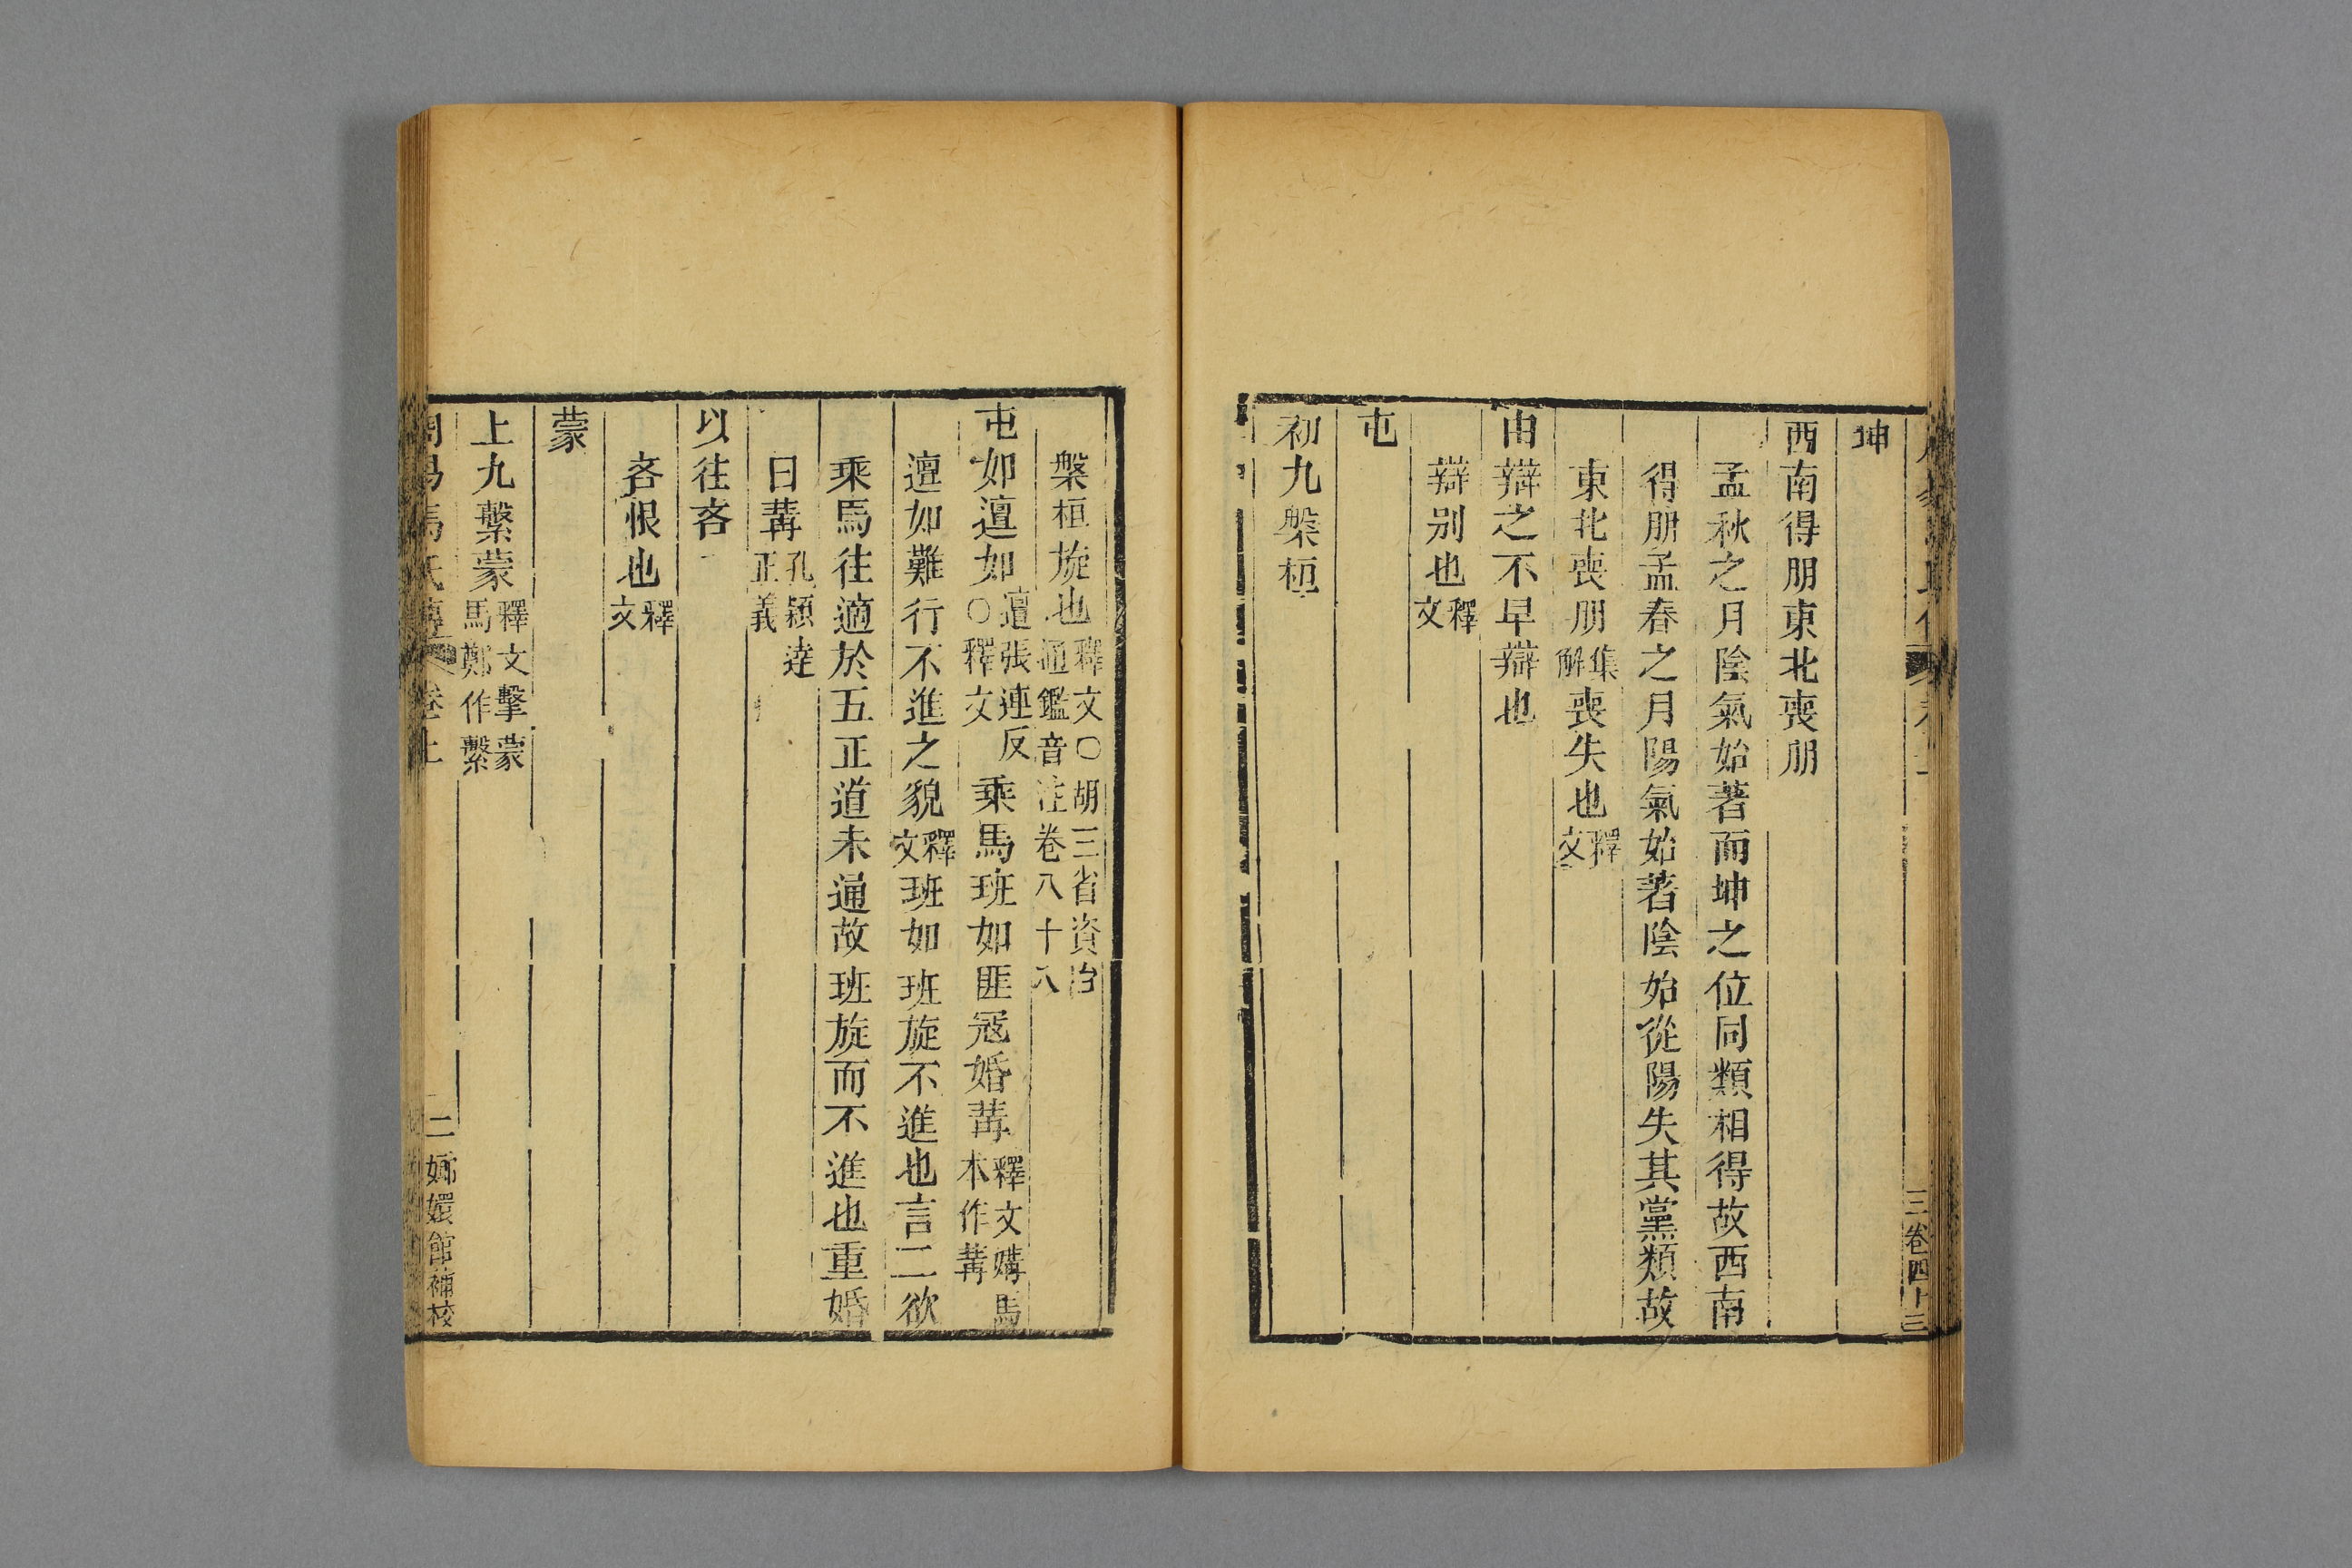 坤
西南得朋東北喪朋
孟秋之月陰氣始著而坤之位同類相得故西南
得朋孟春之月陽氣始著陰始從陽失其黨類故
東北喪朋集解喪失也釋文
由辯之不早辯也
辯别也釋文
屯
初九槃桓
三卷四十三
槃桓旋也釋文〇胡三省資治通鑑音注卷八十八
屯如邅如邅張連反〇釋文乘馬班如匪寇婚冓釋文媾馬本作冓
邅如難行不進之貌釋文班如班旋不進也言二欲
乘馬往適於五正道未通故班旋而不進也重婚
曰冓孔穎達正義
以往吝
吝恨也釋文
蒙
上九繫蒙釋文擊蒙馬鄭作繫
卷上
二嫏嬛館補校